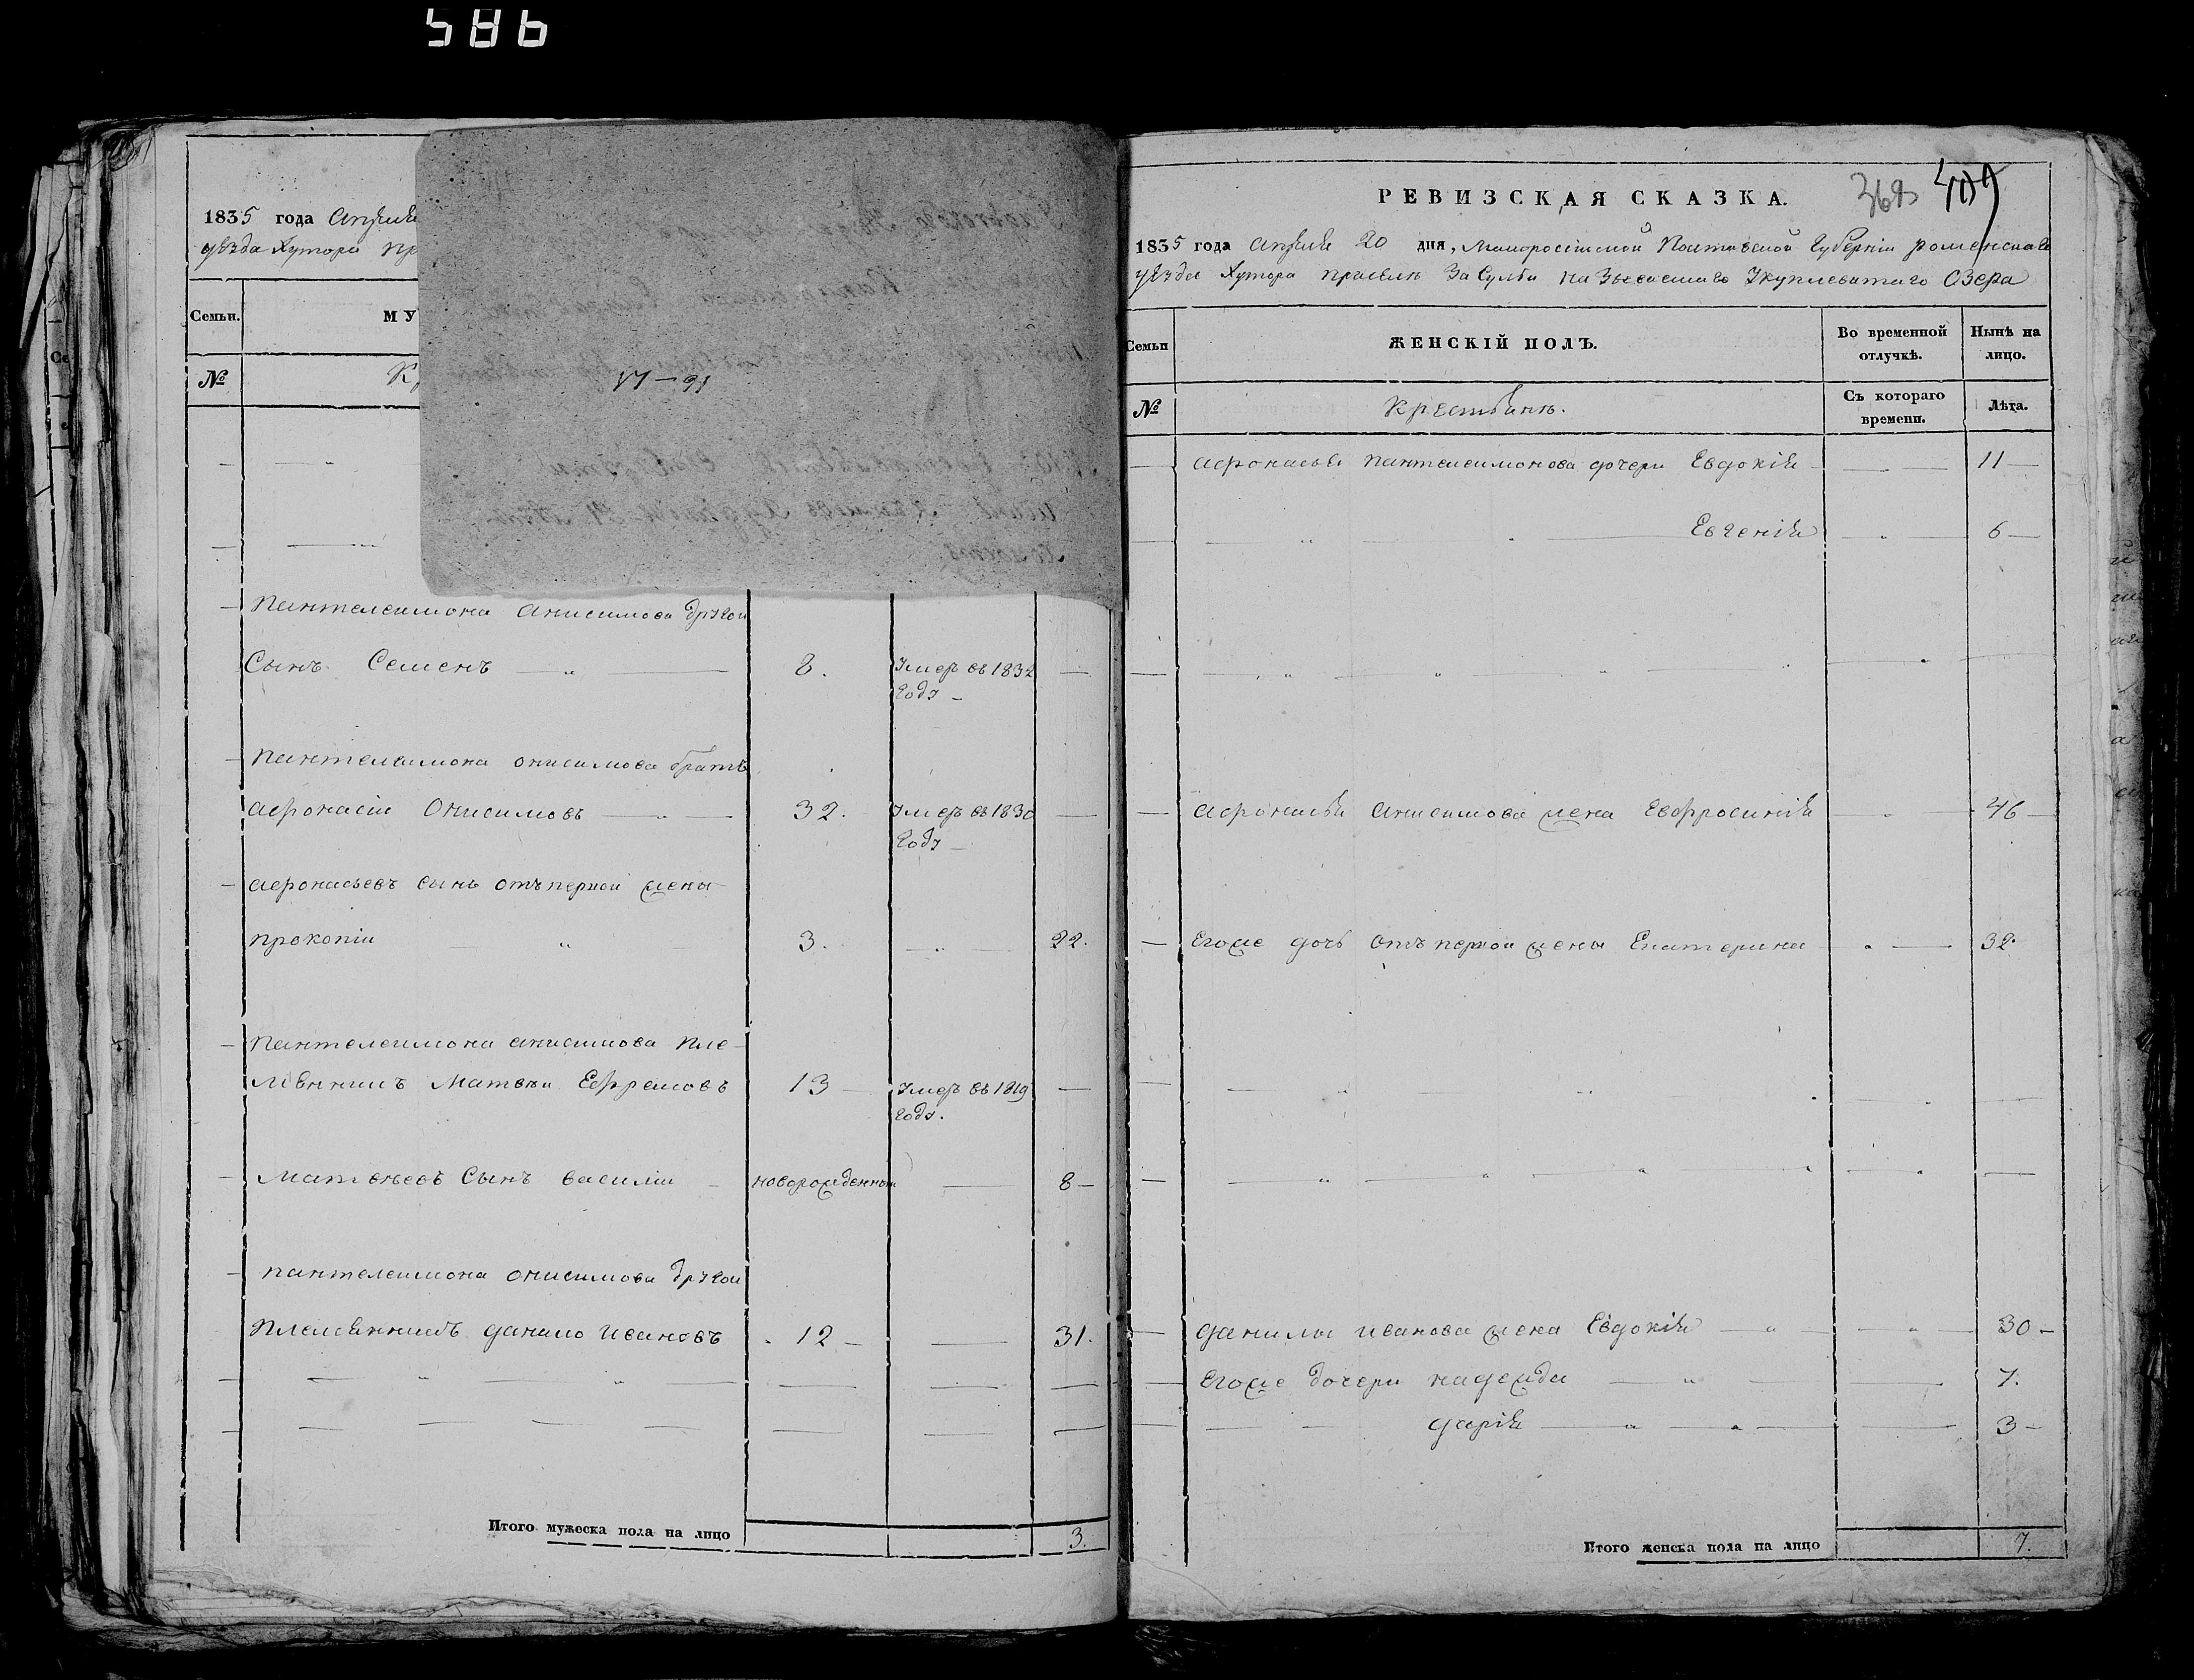 586
1835 года Апреля
уѣзда Хутора пр
Семьи.
МУ
№
Кр
16 — VI
Пантелеимона Анисимова другои
Сынъ Семенъ — 8. Умеръ въ 1832 —
году —
Пантелеимона онисимова братъ
Афонасіи Онисимовъ — 32. Умеръ въ 1830 —
году —
Афонасьевъ сынъ отъ первои жены
прокопіи " 3. — " — 22.
Пантелеимона анисимова пле-
мѣнникъ Матвѣи Ефремовъ 13 — Умеръ въ 1819 —
году.
Матвѣевъ Сынъ василіи — новорожденныи — 8 —
пантелеимона онисимова другои
племѣнникъ данило ивановъ 12 — — 31.
Итого мужеска пола на лицо 3.
РЕВИЗСКАЯ СКАЗКА.
409
1835 года апреля 20 дня, Малоросіиской Полтавской Губерніи роменскаго
уѣзда Хутора
За Сулои
Озера
Семьи
ЖЕНСКІЙ ПОЛЪ.
Во временной отлучкѣ.
Нынѣ на лицо.
№
Крестьянъ.
Съ котораго времени.
Лѣта.
Афонасья пантелеимонова дочери Евдокія — 11 —
Евгенія — 6 —
Афонасья Анисимова жена Евфросинія — 46 —
Егоже дочь отъ первои жены Екатерина — 32.
данилы иванова жена Евдокія — 30 —
Егоже дочери надежда — 7.
дарія — 3 —
Итого женска пола на лицо 7.